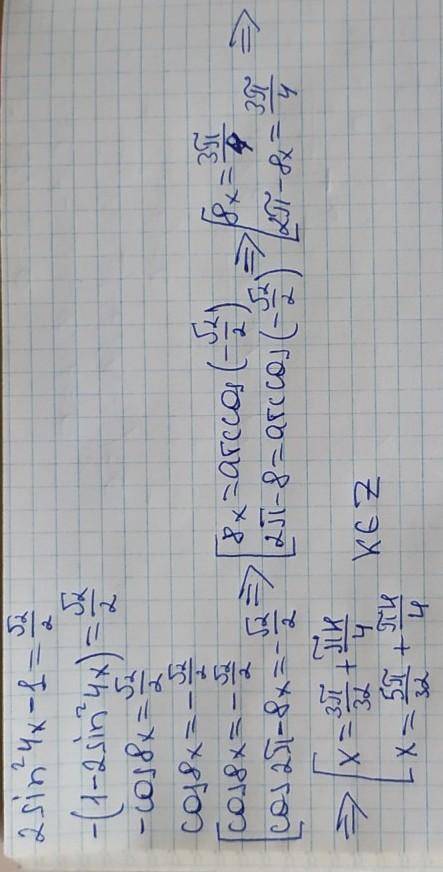 2sin²4x-1=√2/2
-(1-2sin²4x)=√2/2
-cos8x=√2/2
cos8x=-√2/2
[cos8x=-√2/2
[cos2π-8x=-√2/2
⇒ [8x=arccos(-√2/2)
[2π-8=arccos(-√2/2)
⇒ [8x=3π/4
[2π-8x=3π/4 ⇒
⇒ [x=3π/32+πk/4
[x=5π/32+πk/4
k∈Z